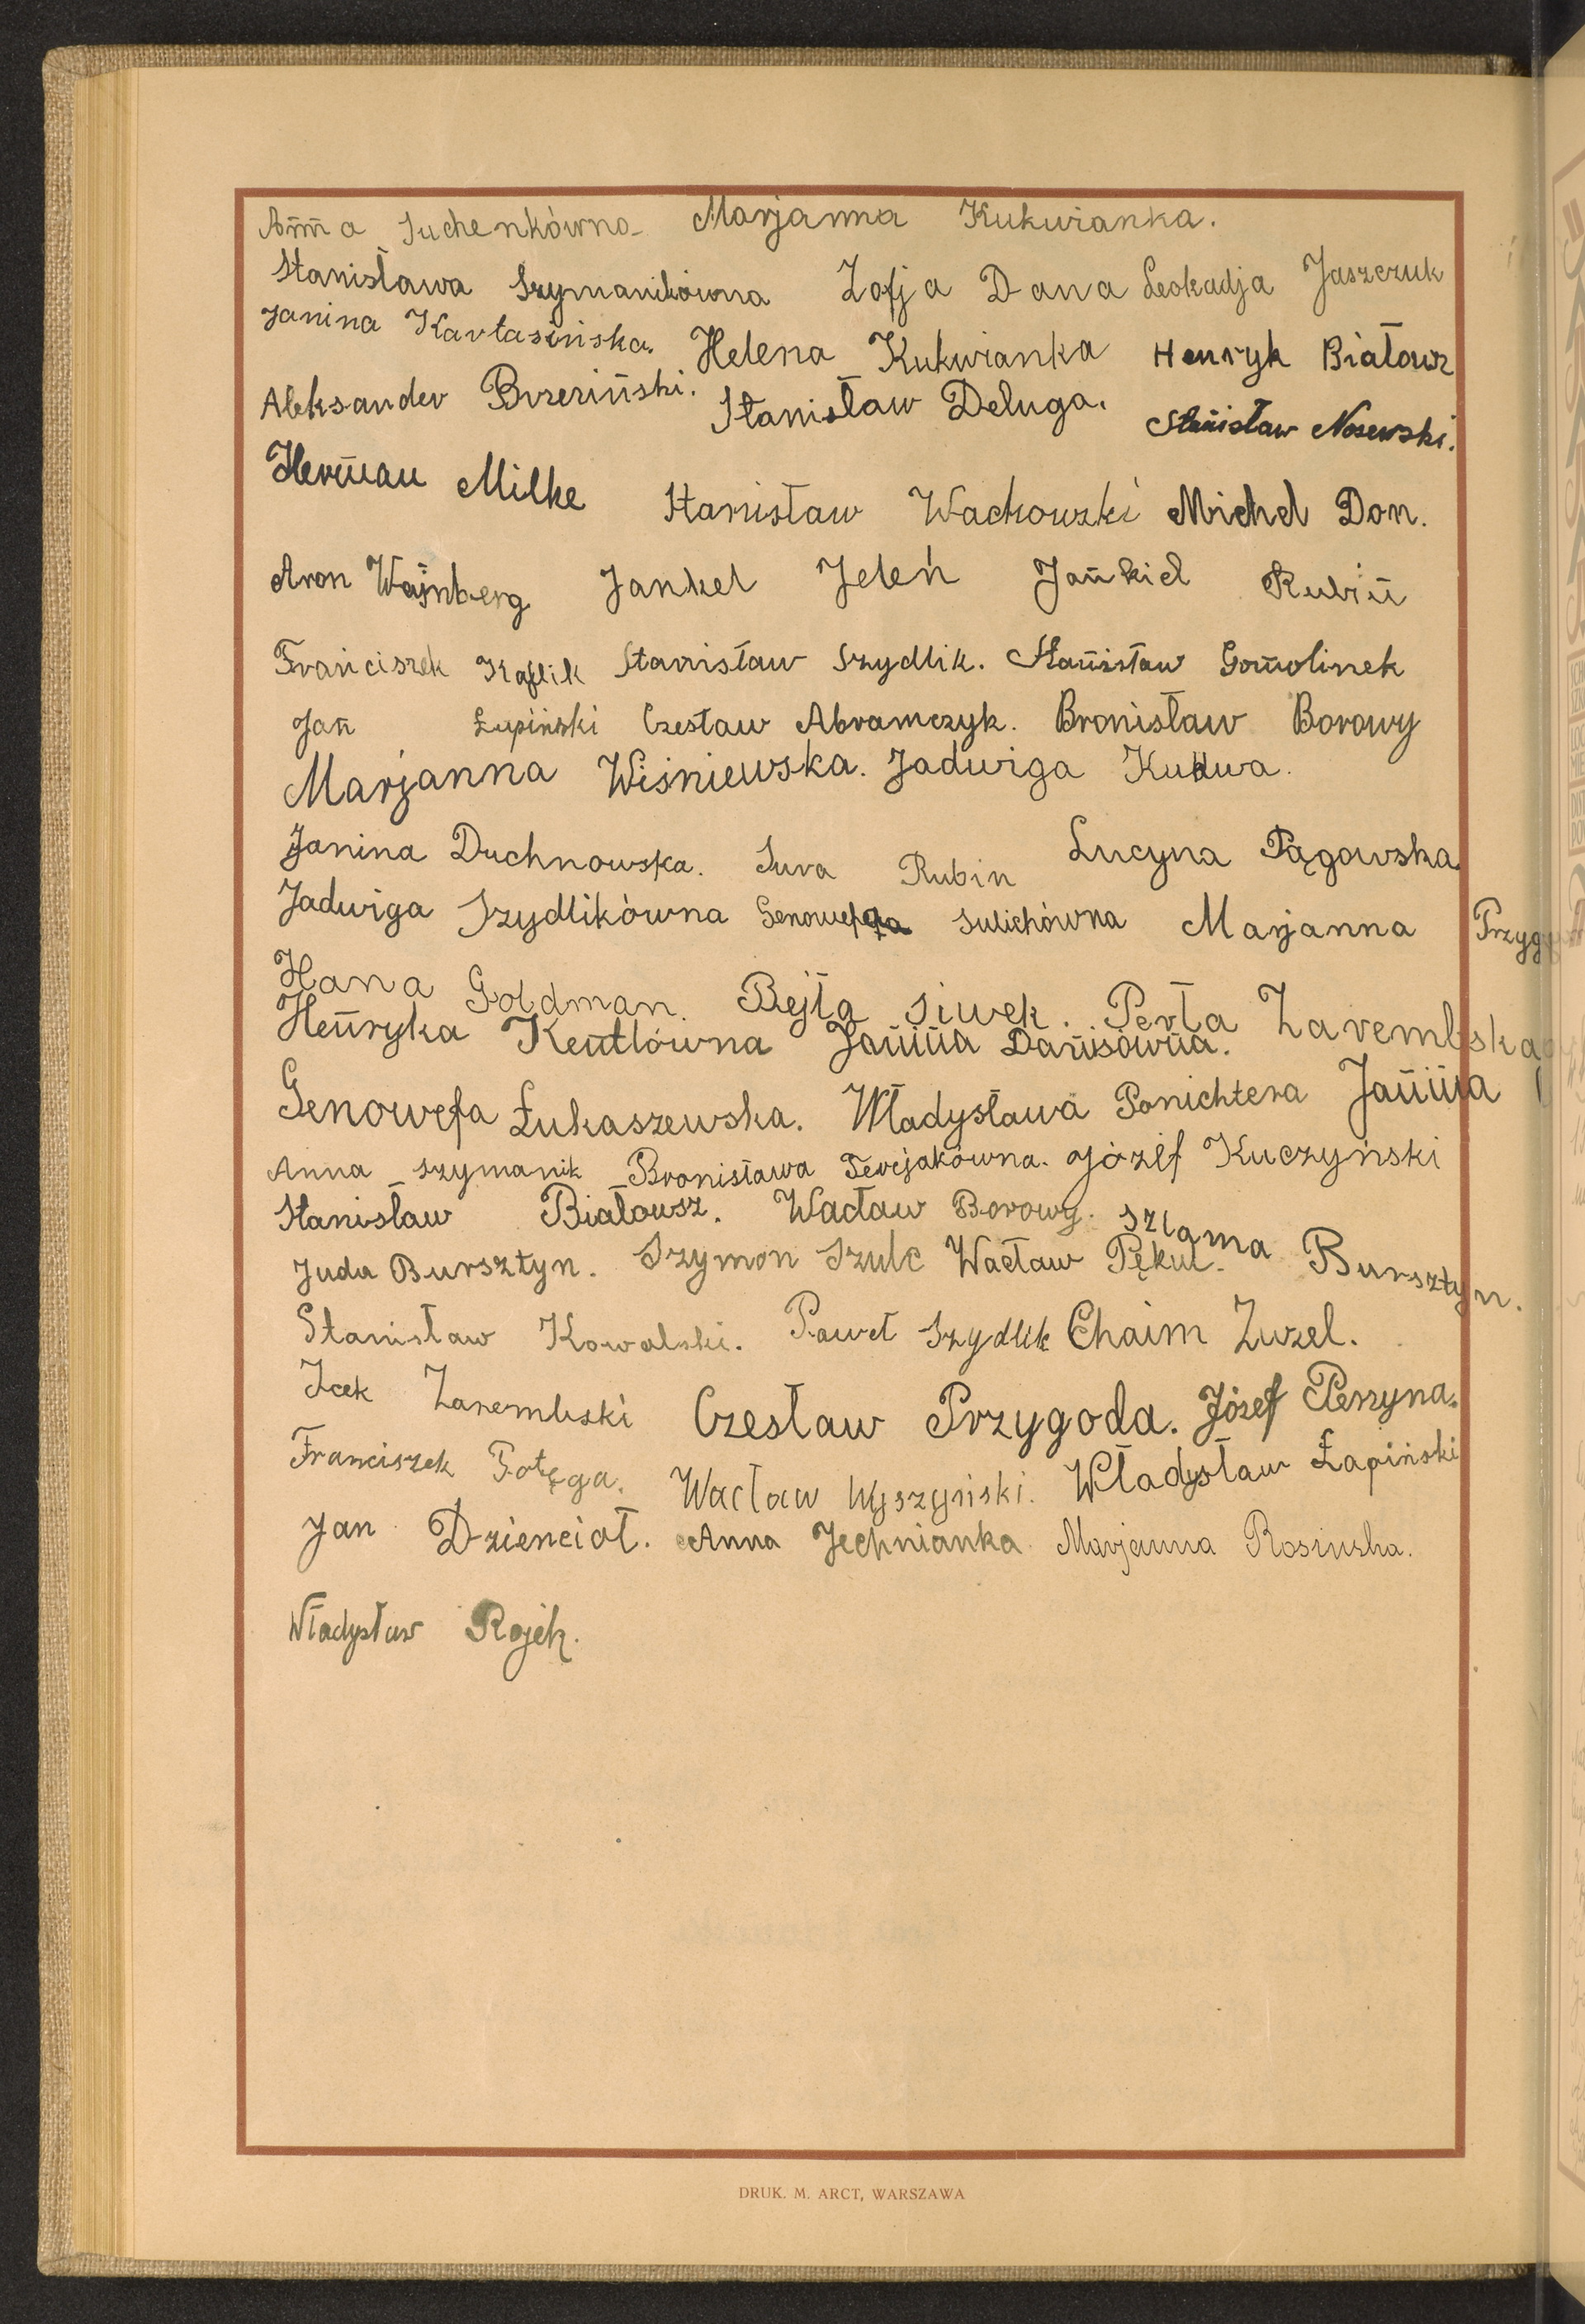 Anna Suchenkówna Marjanna Kukwianka.
Stanisława Szymanikówna Zofja Dana Leokadja Jaszczuk
Janina Karłasińska. Helena Kukwianka Henryk Białowz
Aleksander Brzeziński. Stanisław Deluga. Stanisław Nosewski.
Herman Milke Stanisław Wachowski Michel Don.
Aron Wajnberg Jankel Jeleń Jankiel Rubin
Franciszek Kaflik Stanisław Szydlik. Stanisław Gomolinek
Jan Łupiński Czesław Abramczyk. Bronisław Borowy
Marjanna Wiśniewska. Jadwiga Kudwa.
Janina Duchnowska. Sura Rubin Lucyna Pągowska
Jadwiga Szydlikówna Genowefa Sulichówna Marjanna
Hana Goldman. Bejła Siwek. Perła Zarembska
Henryka Kentlówna Janina Danisówna.
Genowefa Łukaszewska. Władysława Ponichtera Janina
Anna Szymanik Bronisława Terejakówna. Józef Kuczyński
Stanisław Białousz. Wacław Borowy. Szlama Bursztyn.
Juda Bursztyn. Szymon Szulc Wacław Pękul.
Stanisław Kowalski. Paweł Szydlik Chaim Zuzel.
Icek Zarembski Czesław Przygoda. Józef Perzyna.
Franciszek Potęga. Wacław Wyszyński. Władysław Łapiński
Jan Dziencioł. Anna Jechnianka Marjanna Rosińska.
Władysław Rojek.
DRUK. M. ARCT, WARSZAWA